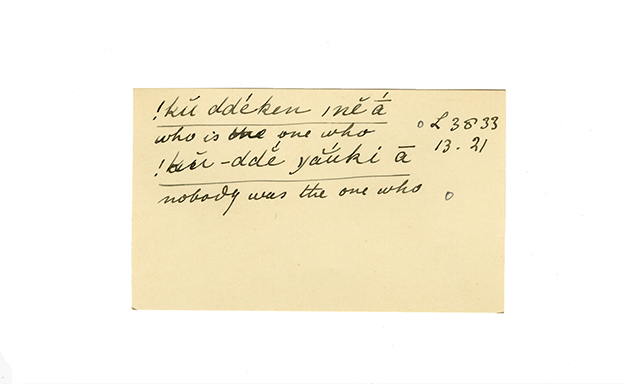 !kŭ ddéken ıně ā́
who is the one who o L 3833
!kŭ-ddĕ yăúki ā 13.21
nobody was the one who o